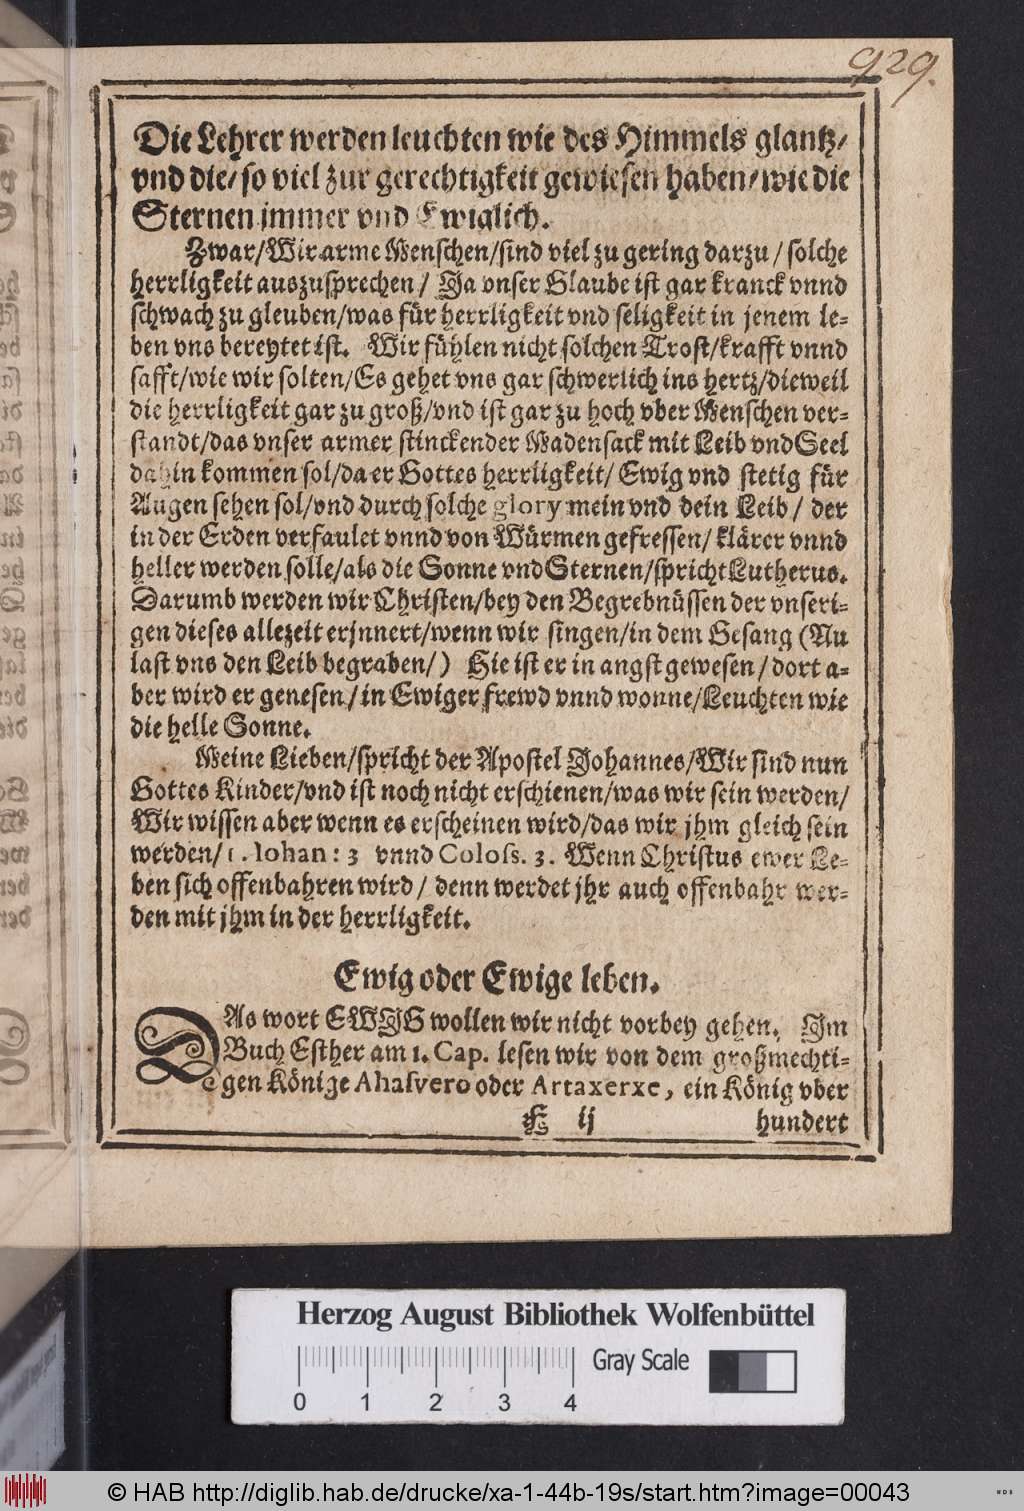 929.
Die Lehrer werden leuchten wie des Himmels glantz/
vnd die/ so viel zur gerechtigkeit gewiesen haben/ wie die
Sternen jmmer vnd Ewiglich.
Zwar/ Wir arme Menschen/ sind viel zu gering darzu / solche
herrligkeit auszusprechen / Ja vnser Glaube ist gar kranck vnnd
schwach zu gleuben/ was für herrligkeit vnd seligkeit in jenem le-
ben vns bereytet ist. Wir fühlen nicht solchen Trost/ krafft vnnd
safft/ wie wir solten/ Es gehet vns gar schwerlich ins hertz/ dieweil
die herrligkeit gar zu groß/ vnd ist gar zu hoch vber Menschen ver-
standt/ das vnser armer stinckender Madensack mit Leib vnd Seel
dahin kommen sol/ da er Gottes herrligkeit/ Ewig vnd stetig für
Augen sehen sol/ vnd durch solche glory mein vnd dein Leib / der
in der Erden verfaulet vnnd von Würmen gefressen/ klärer vnnd
heller werden solle/ als die Sonne vnd Sternen/ spricht Lutherus.
Darumb werden wir Christen/ bey den Begrebnüssen der vnseri-
gen dieses allezeit erjnnert/ wenn wir singen/ in dem Gesang (Nu
last vns den Leib begraben/) Hie ist er in angst gewesen / dort a-
ber wird er genesen / in Ewiger frewd vnnd wonne/ Leuchten wie
die helle Sonne.
Meine Lieben/ spricht der Apostel Johannes/ Wir sind nun
Gottes Kinder/ vnd ist noch nicht erschienen/ was wir sein werden/
Wir wissen aber wenn es erscheinen wird/ das wir jhm gleich sein
werden/ 1. Iohan: 3 vnnd Coloss. 3. Wenn Christus ewer Le-
ben sich offenbahren wird / denn werdet jhr auch offenbahr wer-
den mit jhm in der herrligkeit.
Ewig oder Ewige leben.
DAs wort EWJG wollen wir nicht vorbey gehen. Jm
Buch Esther am 1. Cap. lesen wir von dem großmechti-
gen Könige Ahasvero oder Artaxerxe, ein König vber
E ij hundert
Herzog August Bibliothek Wolfenbüttel
Gray Scale
0 1 2 3 4
© HAB http://diglib.hab.de/drucke/xa-1-44b-19s/start.htm?image=00043